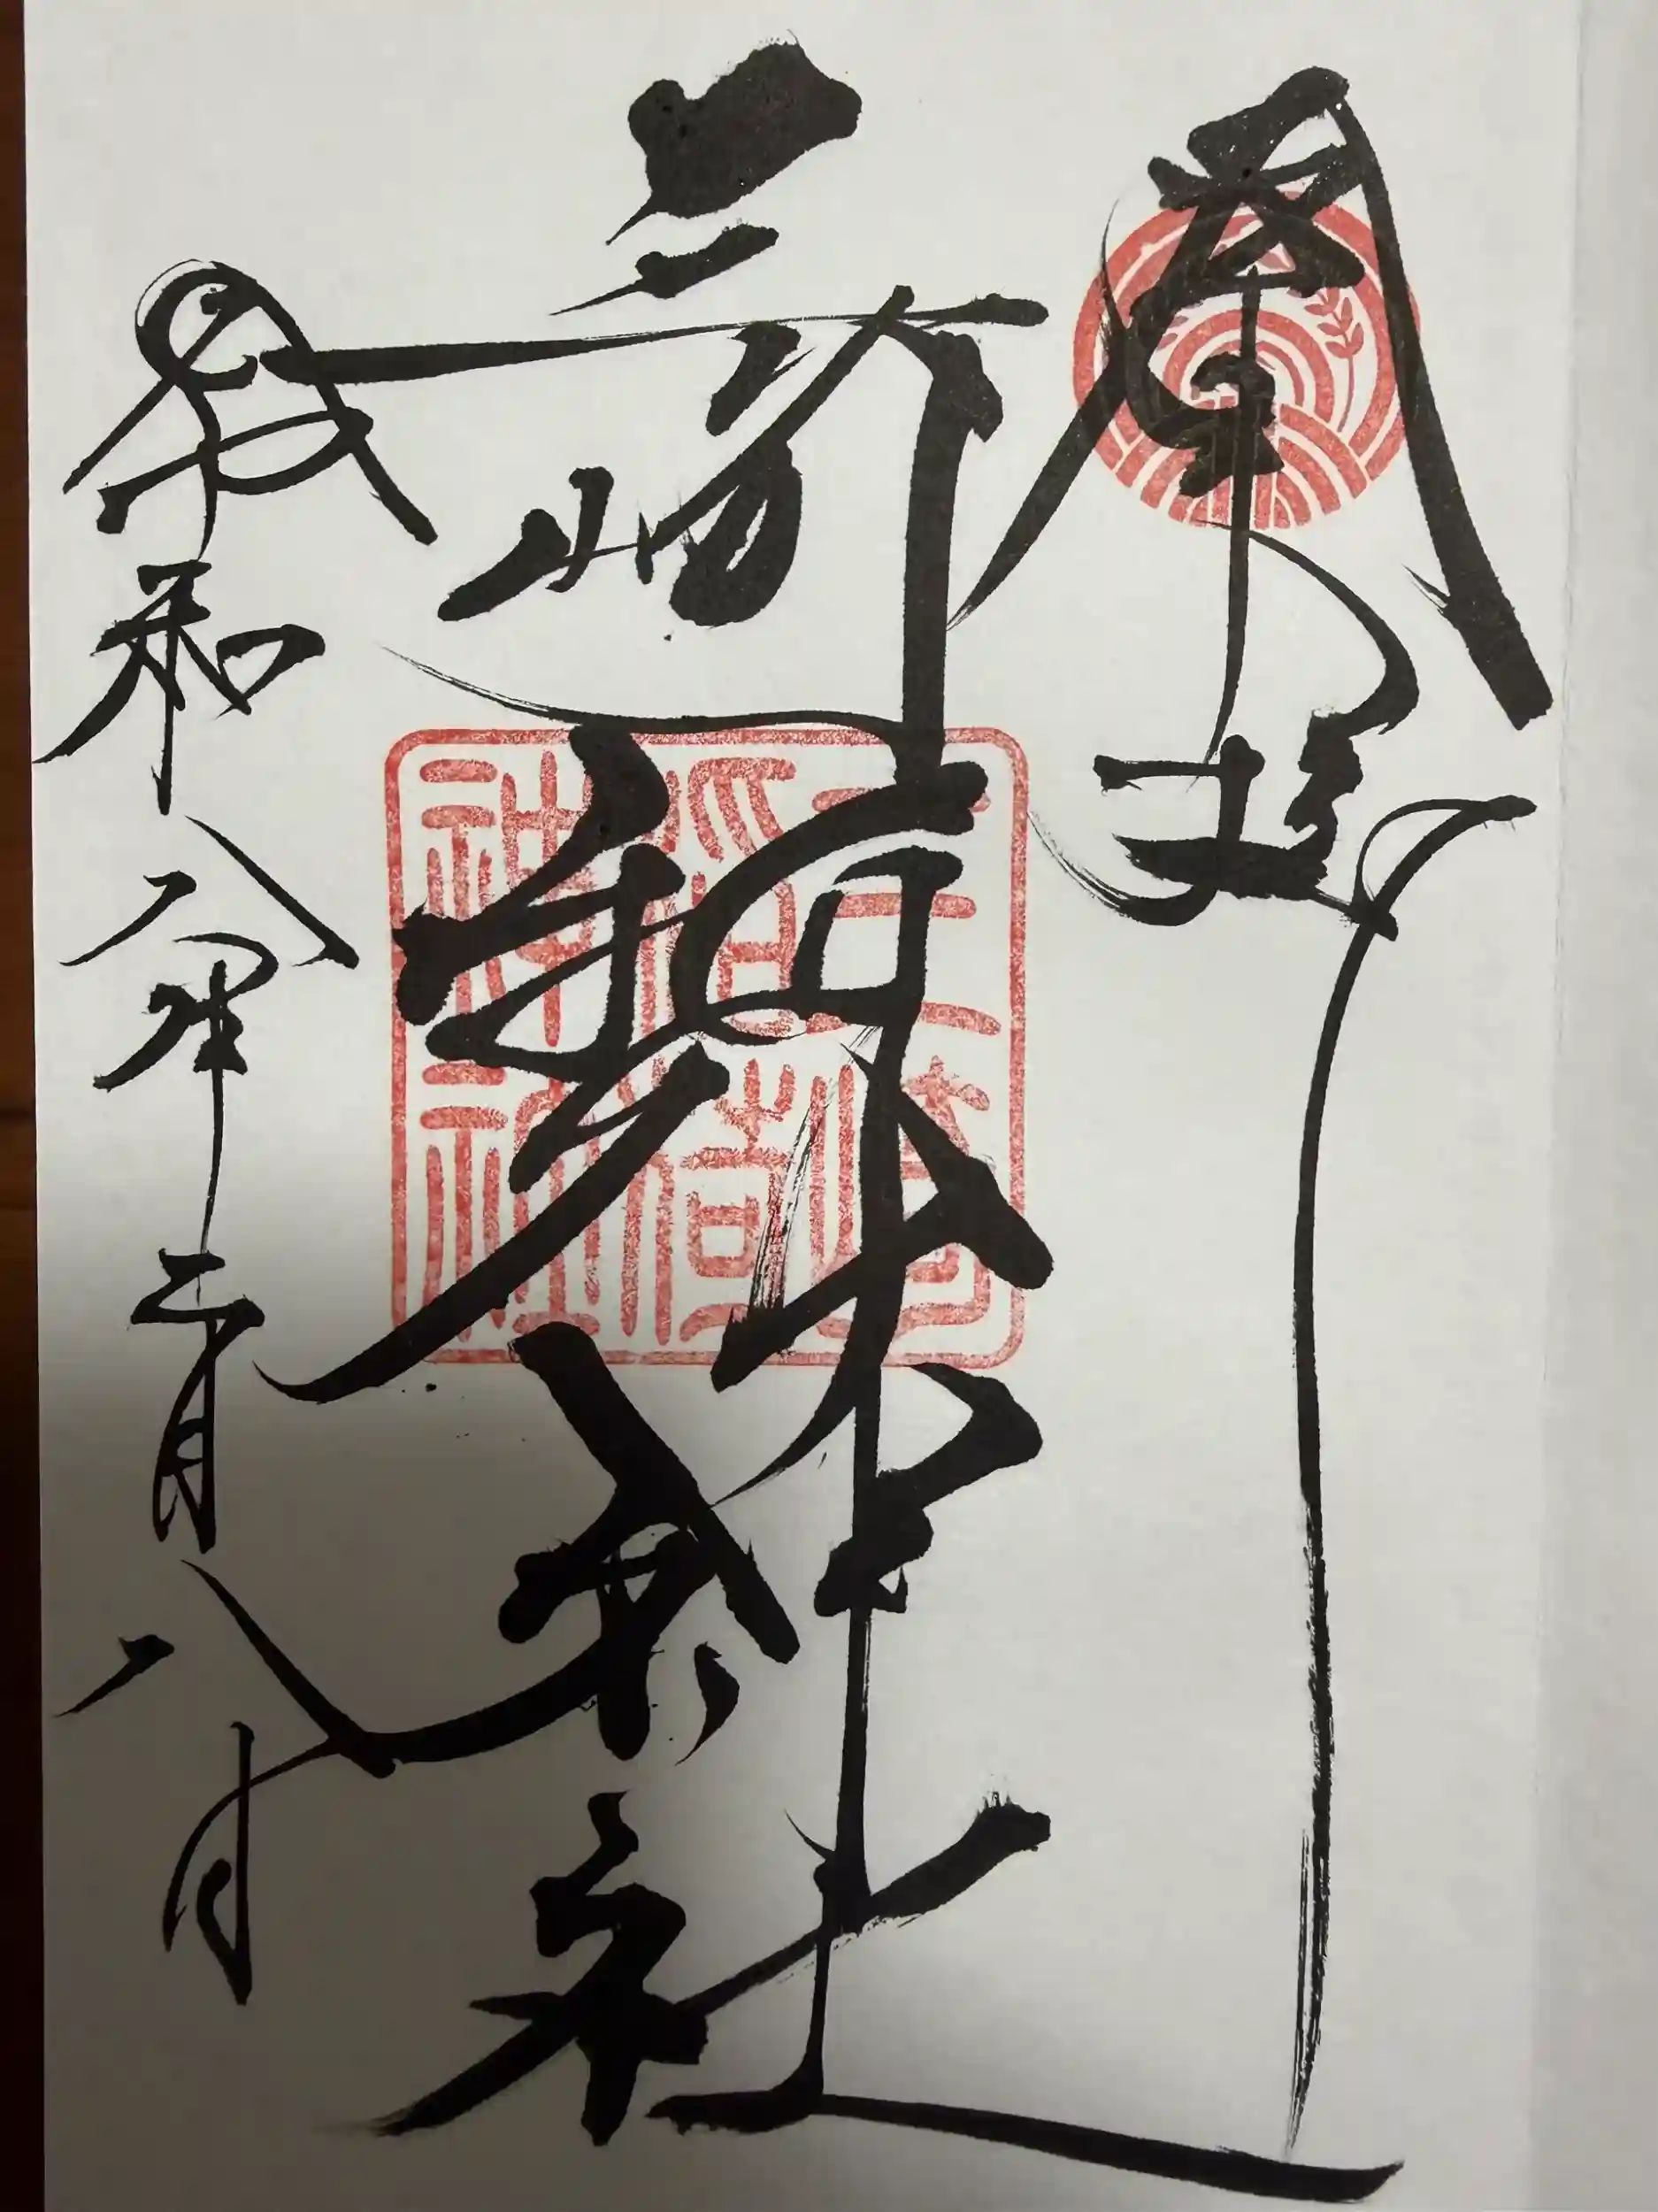 奉拝
三崎稲荷神社
令和八年二月八日
三崎
稲荷
神社